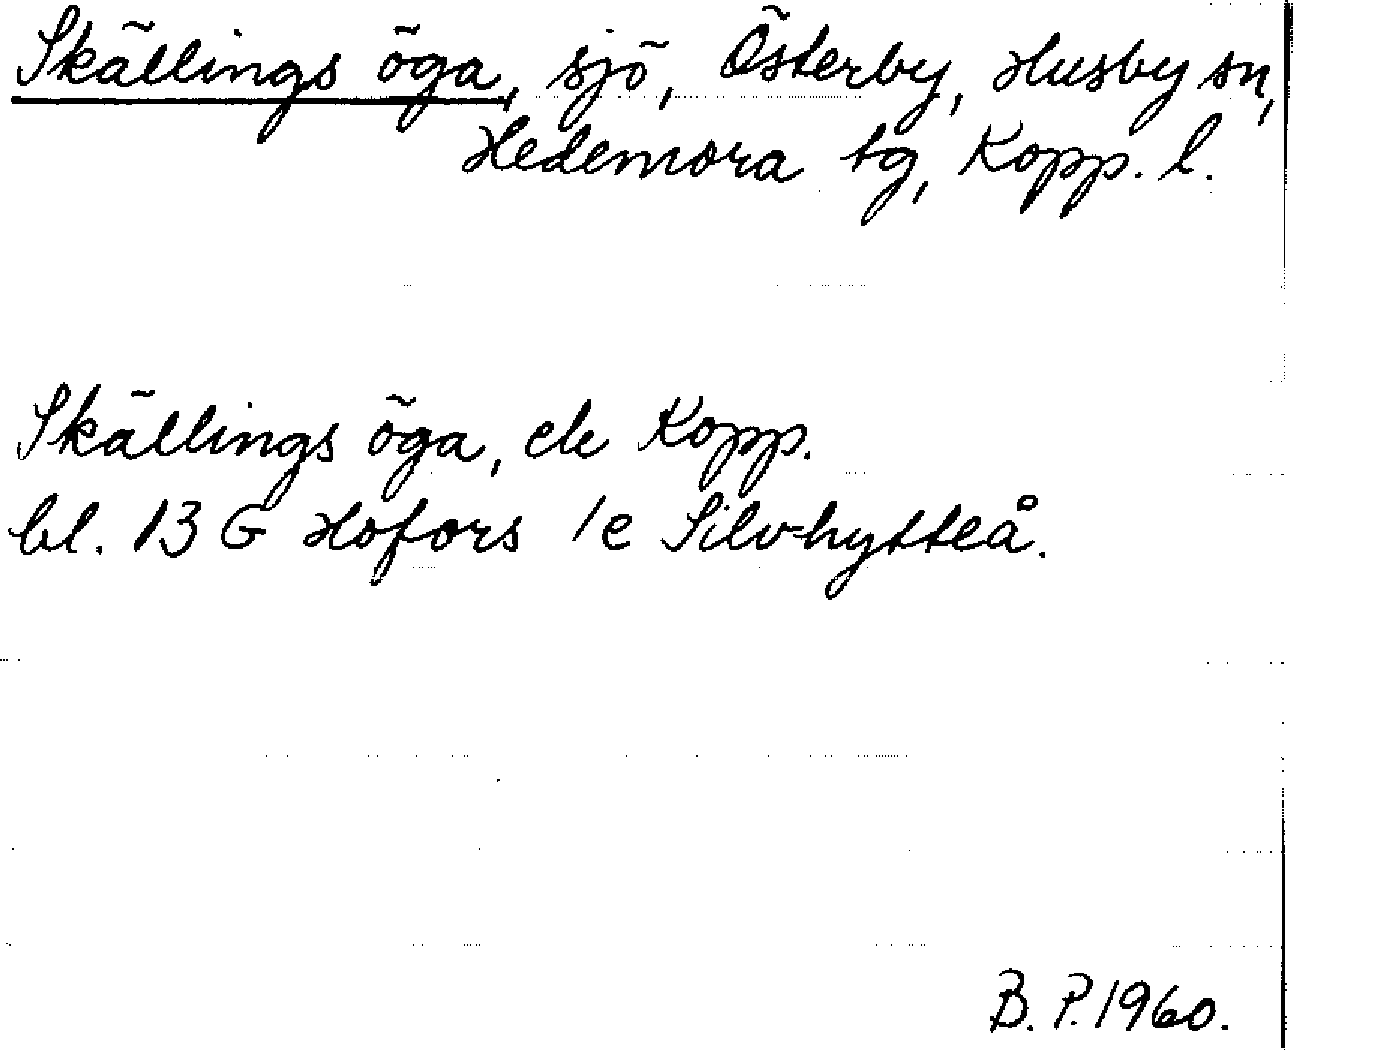 Skällings öga, sjö, Österby, Husby sn,
Hedemora tg, Kopp. l.
Skällings öga, ek Kopp.
bl. 13 G Hofors 1e Silvhytteå.
B. P. 1960.